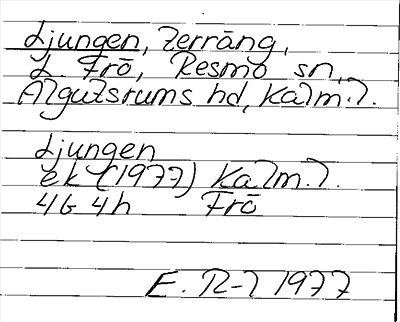 Ljungen, Terräng,
L. Frö, Resmo sn,
Algutsrums hd, Kalm.l.
Ljungen
ek (1977) Kalm.l.
4G 4h Frö
E. R-l 1977